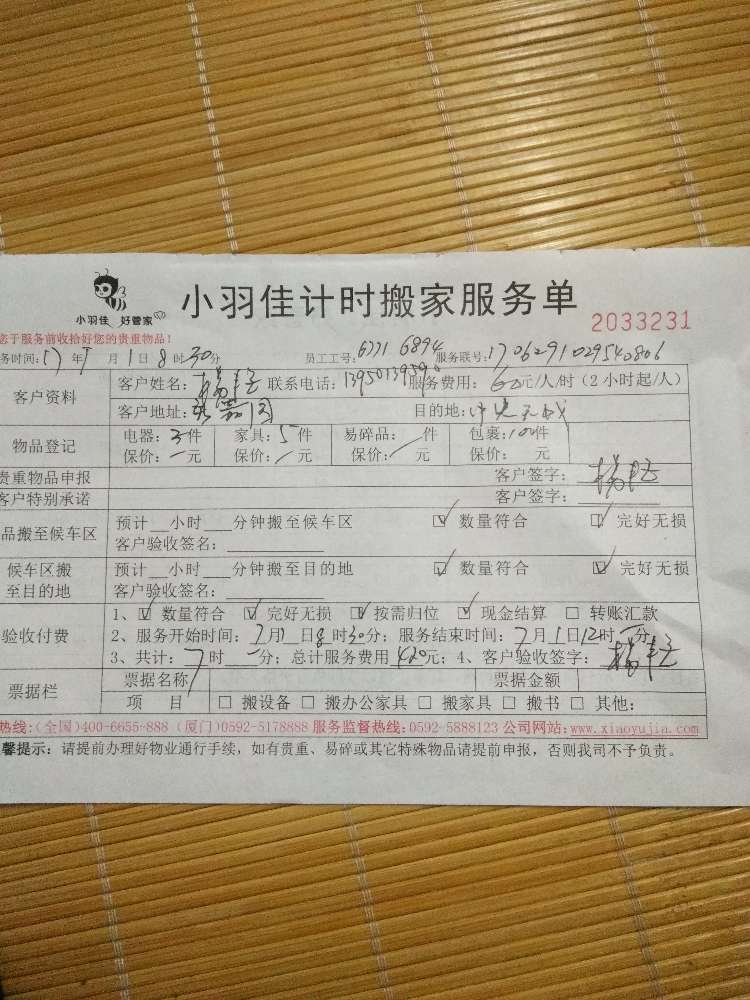 小羽佳 好管家
小羽佳计时搬家服务单
2033231
您于服务前收拾好您的贵重物品!
务时间:17年7月1日8时30分 员工工号:6771 6894 服务联号:170629102954
客户资料
客户姓名: 联系电话: 服务费用:60元/人/时(2小时起/人)
客户地址: 目的地:
物品登记
电器:3件 家具:5件 易碎品: 件 包裹:10件
保价: 元 保价: 元 保价: 元 保价: 元
贵重物品申报 客户签字:
客户特别承诺 客户签字:
品搬至候车区
预计 小时 分钟搬至候车区 ☑ 数量符合 ☑ 完好无损
客户验收签名:
候车区搬
至目的地
预计 小时 分钟搬至目的地 ☑ 数量符合 ☑ 完好无损
客户验收签名:
验收付费
1、☑ 数量符合 ☑ 完好无损 ☑ 按需归位 ☑ 现金结算 □ 转账汇款
2、服务开始时间:7月1日8时30分;服务结束时间:7月1日12时 分
3、共计:7时 分;总计服务费用420元;4、客户验收签字:
票据栏
票据名称 票据金额
项 目 □ 搬设备 □ 搬办公家具 □ 搬家具 □ 搬书 □ 其他:
热线:(全国)400-6655-888 (厦门)0592-5178888 服务监督热线:0592-5888123 公司网站:www.xiaoyujia.com
馨提示:请提前办理好物业通行手续,如有贵重、易碎或其它特殊物品请提前申报,否则我司不予负责。